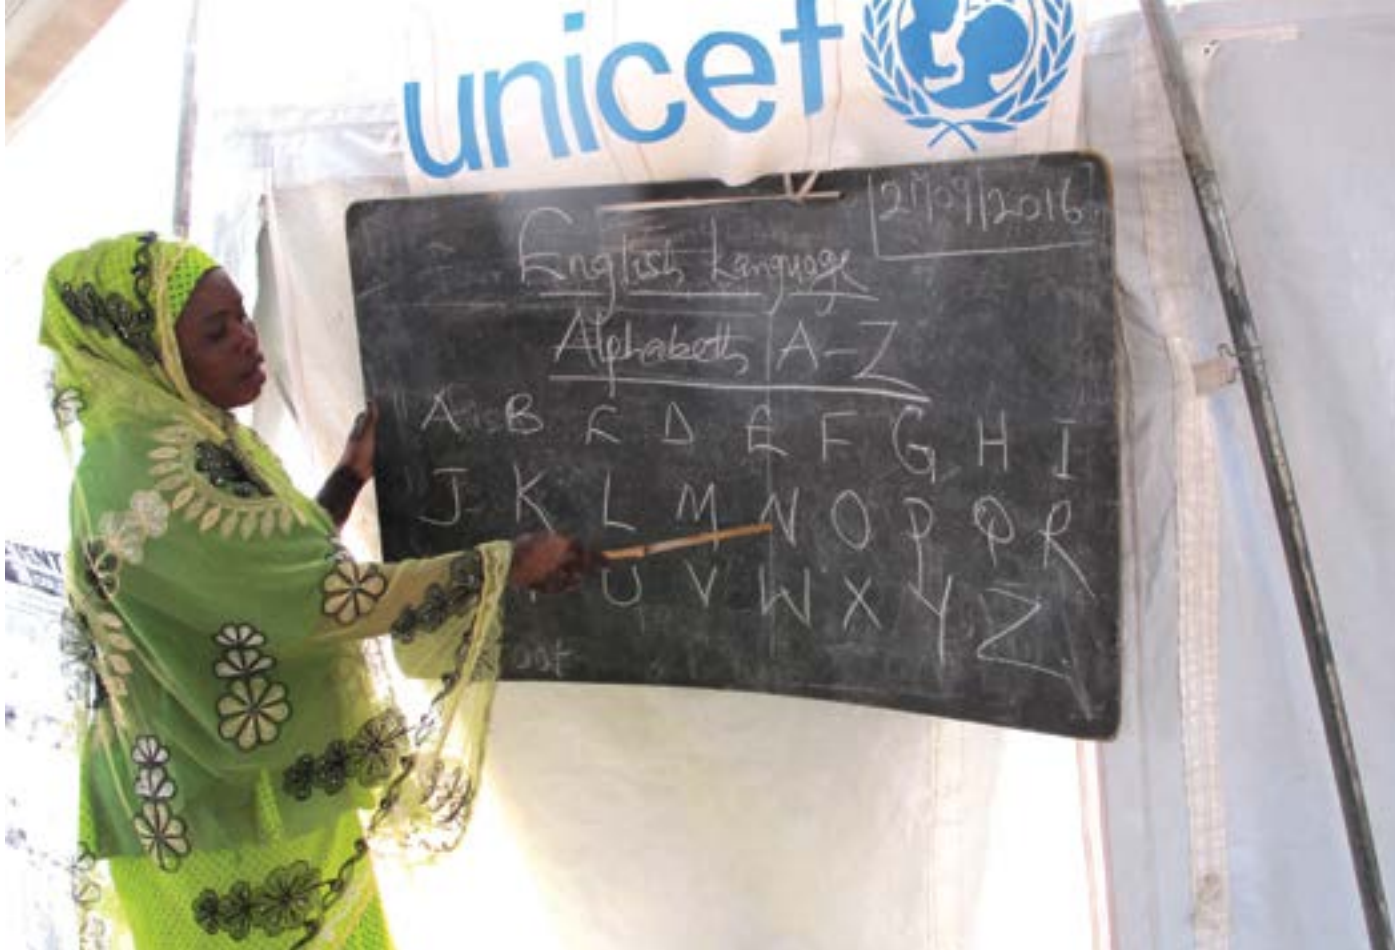 unicef
21/09/2016
English Language
Alphabeth A-Z
A B C D E F G H I
J K L M N O P Q R
U V W X Y Z